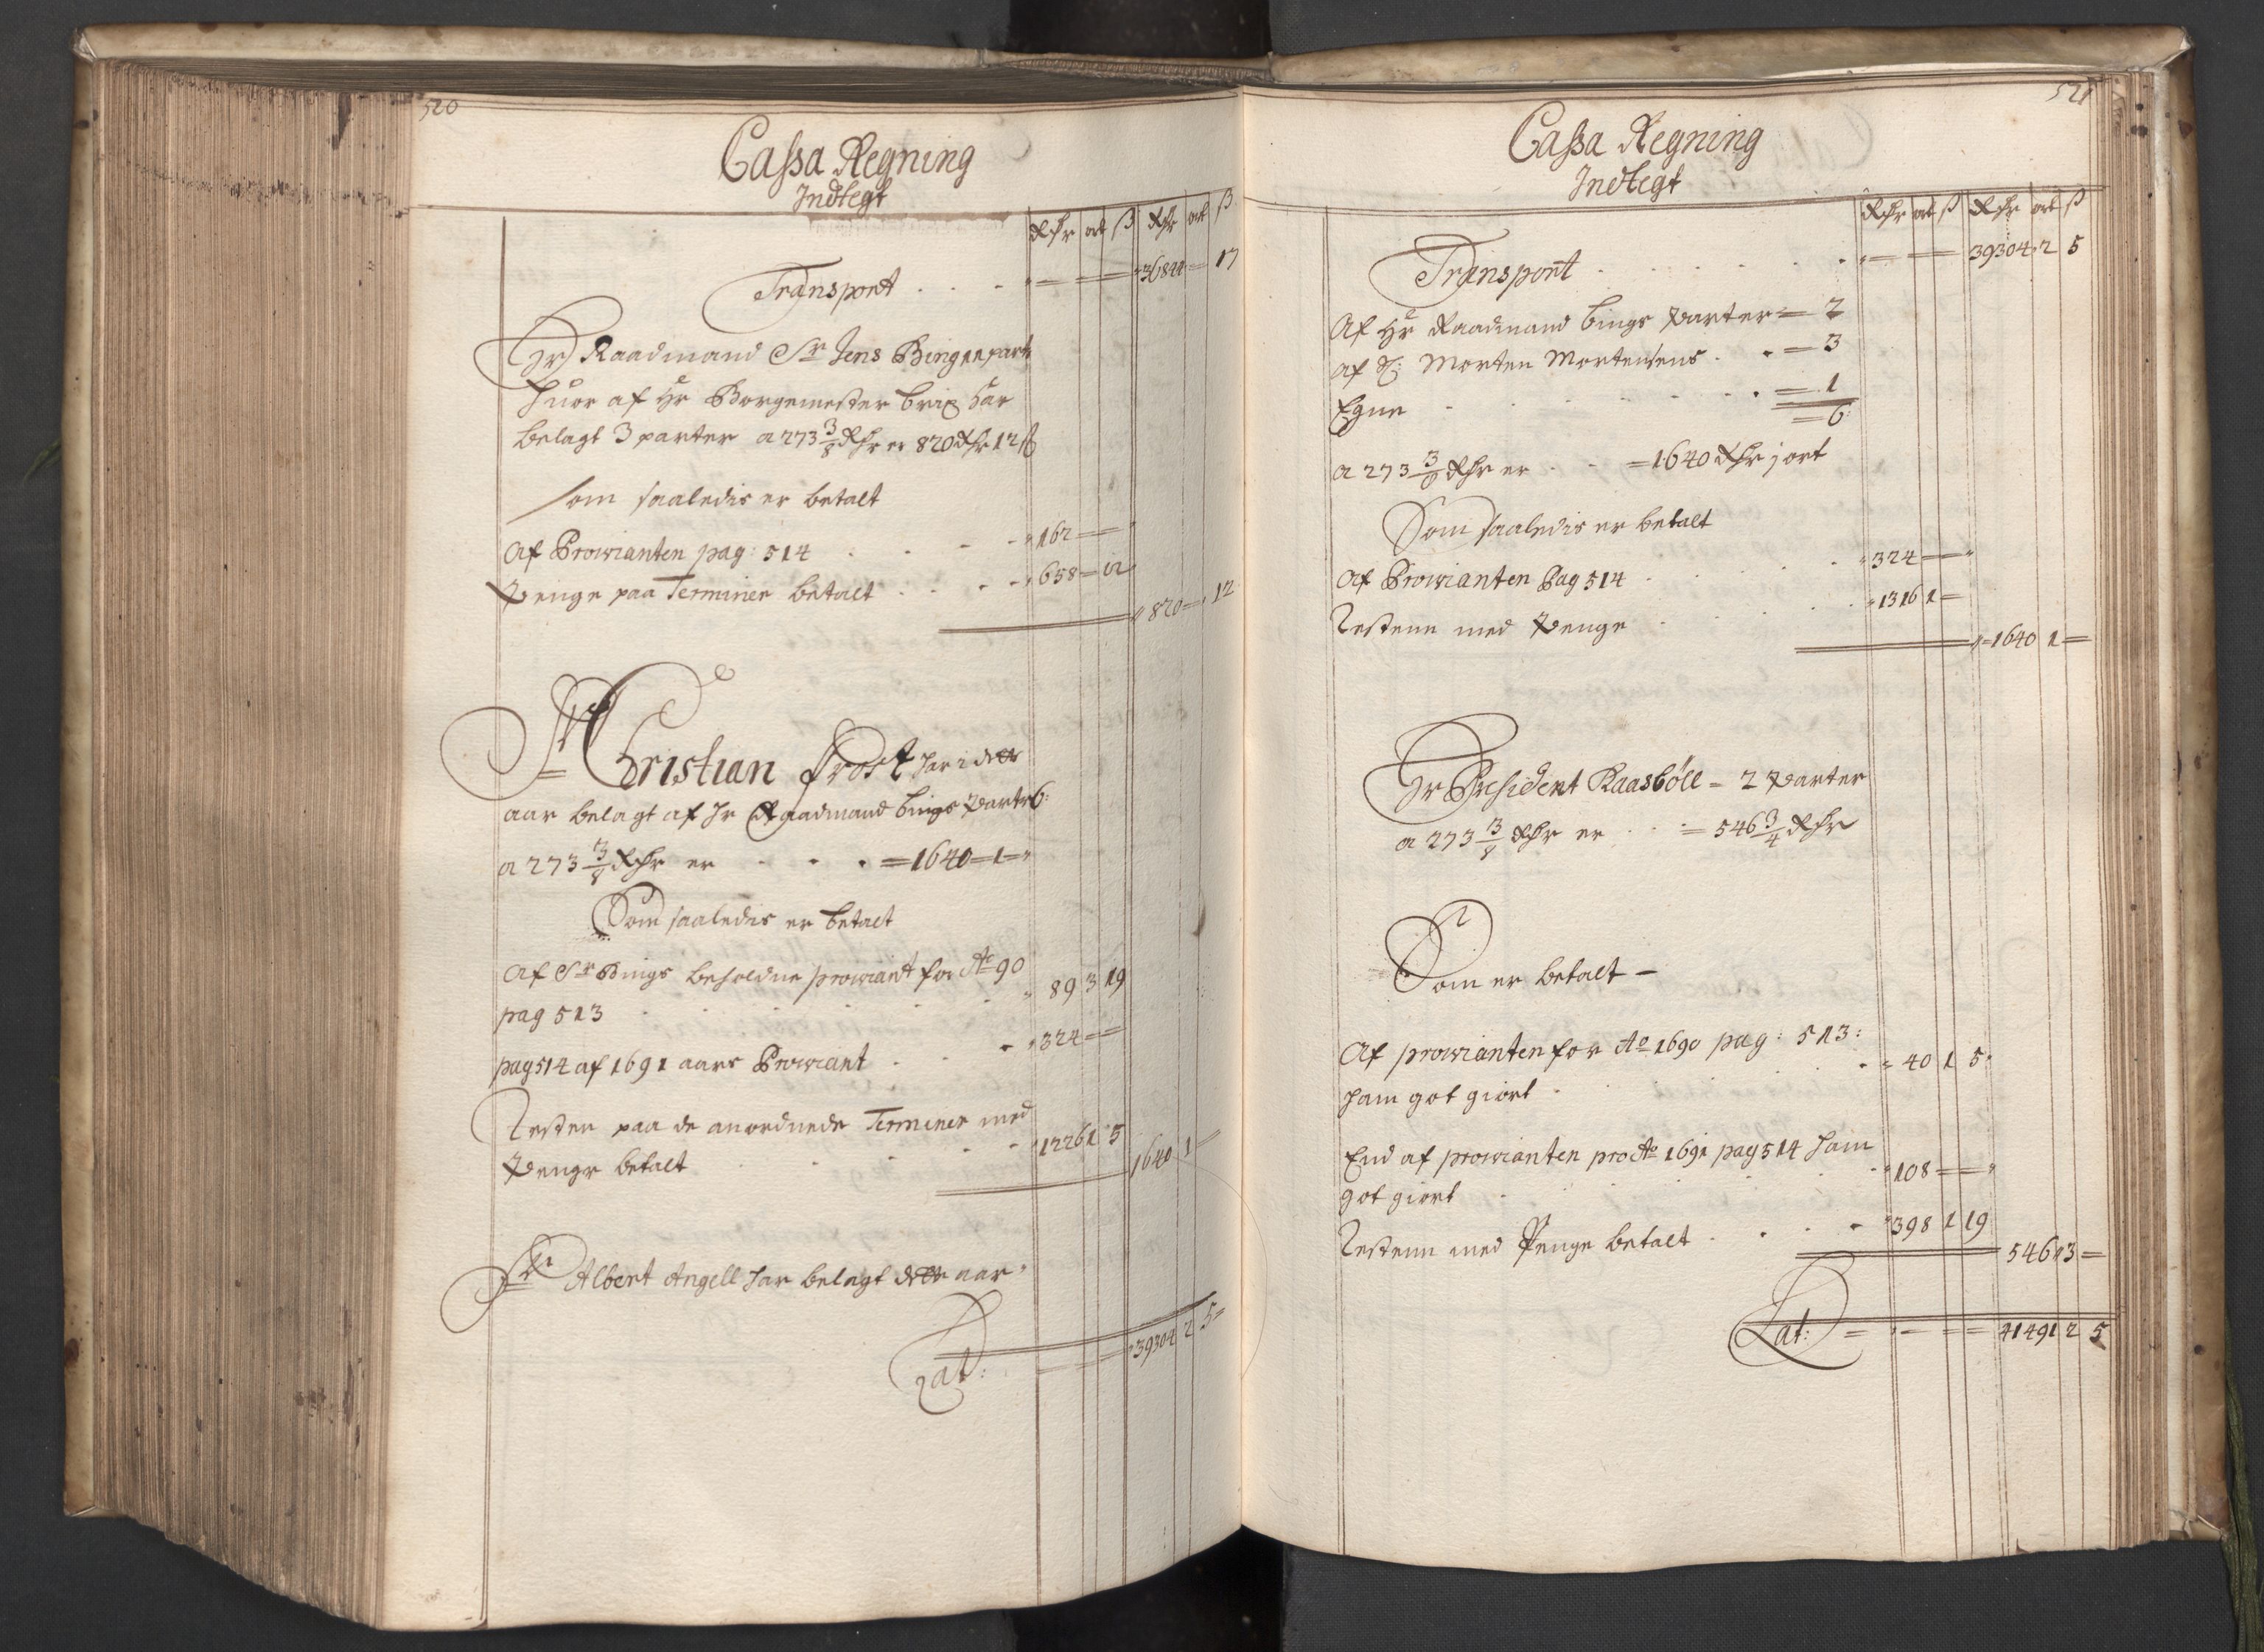 520
Cassa Regning
Indtegt
Rdr ort ß Rdr ort ß
Transport . . . 36844 — 17
Hr Raadmand Sr Jens Bing
huor af Hr Borgemester Brix har
belagt 3 parter a 273 3/8 Rdr er 820 Rdr 12 ß
som saaledis er betalt
Af Prowianten pag: 514 . . . 162 —
Penge paa Terminer betalt . . . 658 — 12
820 — 12
Sr Christian Frost har i dette
aar belagt af Hr Raadmand Bings Parter 6:
a 273 3/8 Rdr er . . . = 1640 — 1 —
Som saaledis er betalt
Af Sr Bings beholdne prowiant for Ao 90
pag 513 . . . 89 3 19
pag 514 af 1691 aars Prowiant . . . 324 —
Resten paa de anordnede Terminer med
Penge betalt . . . 1226 1 5
1640 1 —
Sr Albert Angell har belagt dette aar
Lat: 39304 2 5
521
Cassa Regning
Indtegt
Rdr ort ß Rdr ort ß
Transport . . . 39304 2 5
Af Hr Raadmand Bings Parter = 2
af Morten Mortensens . . = 3
Egne . . . = 1
= 6:
a 273 3/8 Rdr er . . = 1640 Rdr j ort
Som saaledis er betalt
Af Prowianten Pag 514 . . . 324 —
Restenn med Penge . . . 1316 1 —
1640 1 —
Hr President Raasböll = 2 Parter
a 273 3/8 Rdr er . . = 546 3/4 Rdr
Som er betalt —
Af prowianten for Ao 1690 pag: 513:
ham got giort . . . 40 1 5
End af prowianten pro Ao 1691 pag 514 ham
got giort . . . 108 —
Restenn med Penge betalt . . . 398 1 19
546 3 —
Lat: = 41491 2 5